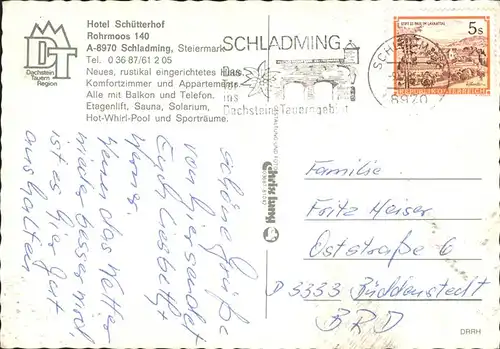 Hotel Schütterhof
Rohrmoos 140
A-8970 Schladming, Steiermark
Tel. 0 36 87/61 2 05
Neues, rustikal eingerichtetes Haus
Komfortzimmer und Appartements
Alle mit Balkon und Telefon.
Etagenlift, Sauna, Solarium,
Hot-Whirl-Pool und Sporträume.
DT
Dachstein
Tauern
Region
SCHLADMING
Das
ins
Dachstein-Tauerngebiet
SCHLADMING
8970
STIFT ST. PAUL IM LAVANTTAL
5s
REPUBLIK ÖSTERREICH
Schöne Grüße
von hier sendet
Euch Liesbeth
Werner.
Wenn das Wetter
wieder besser wird,
ist es hier gut
aushalten
Familie
Fritz Heiser
Oststraße 6
D 3333 Büddenstedt
BRD
DRRH